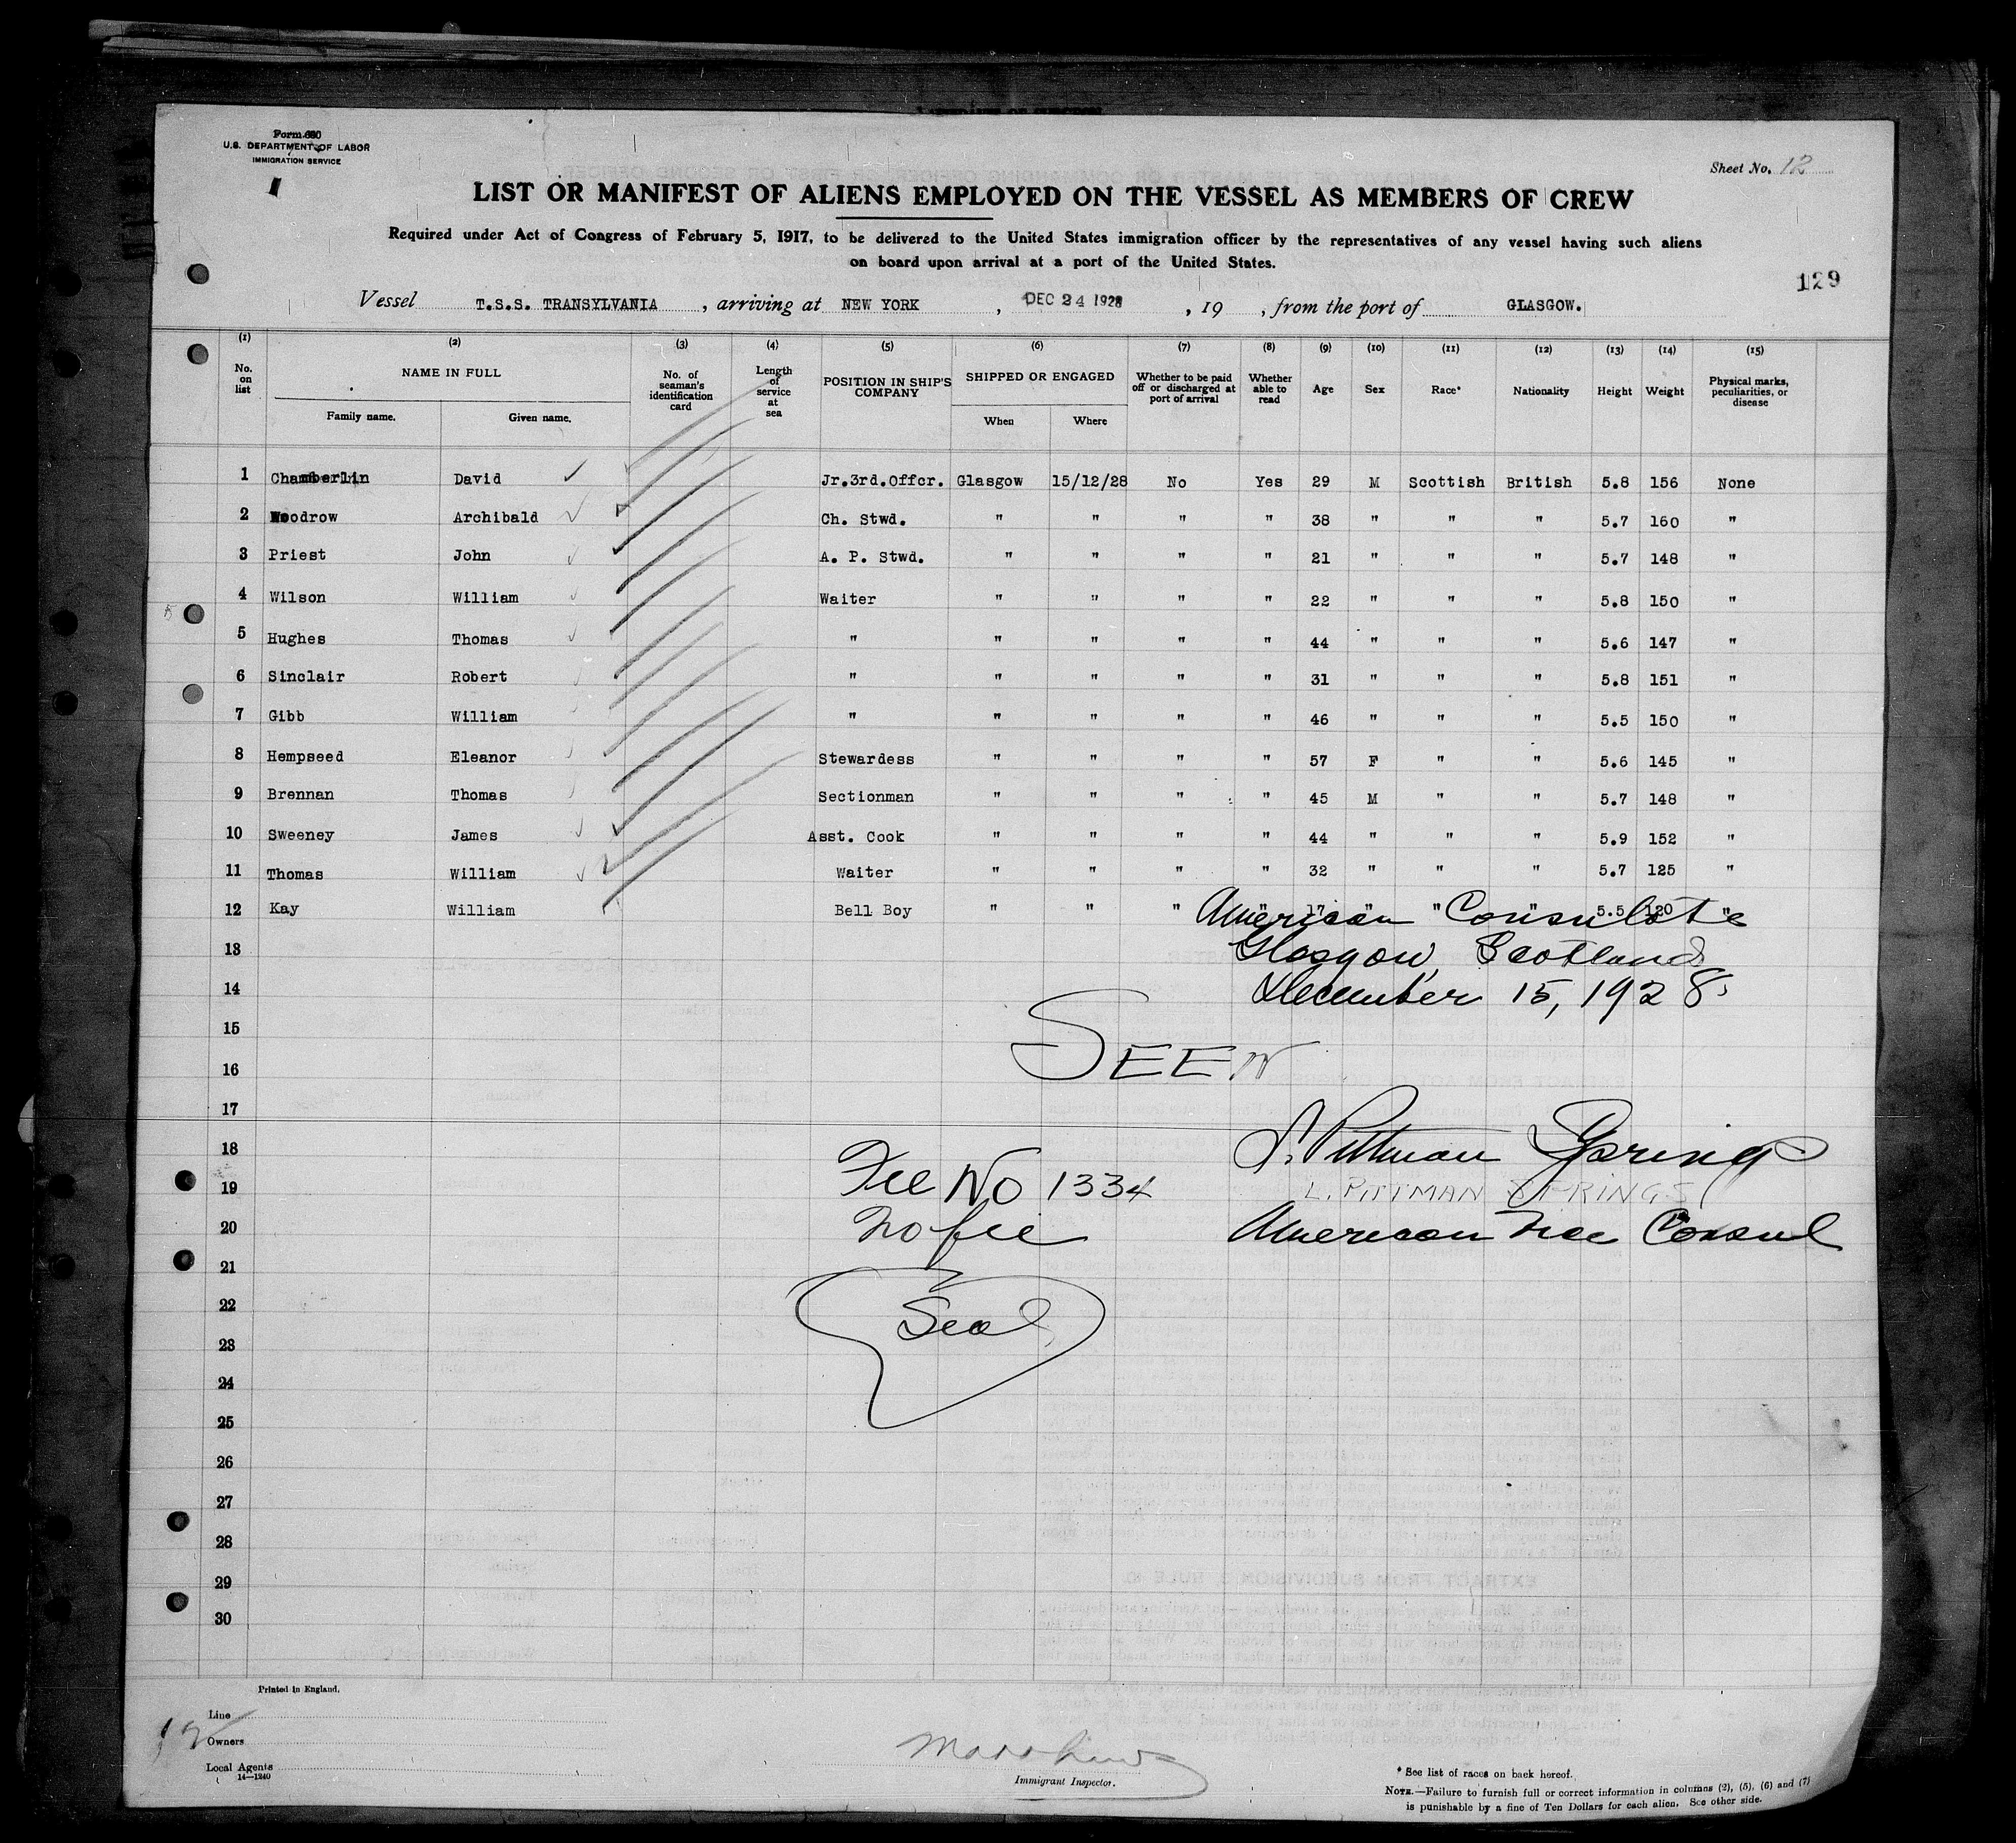 Form 680
U.S. DEPARTMENT OF LABOR
IMMIGRATION SERVICE
Sheet No. 12
LIST OR MANIFEST OF ALIENS EMPLOYED ON THE VESSEL AS MEMBERS OF CREW
Required under Act of Congress of February 5, 1917, to be delivered to the United States immigration officer by the representatives of any vessel having such aliens
on board upon arrival at a port of the United States.
129
Vessel T.S.S. TRANSYLVANIA , arriving at NEW YORK , DEC 24 1928 , 19 , from the port of GLASGOW.
(1) (2) (3) (4) (5) (6) (7) (8) (9) (10) (11) (12) (13) (14) (15)
No. on list NAME IN FULL Family name. Given name. No. of seaman's identification card Length of service at sea POSITION IN SHIP'S COMPANY SHIPPED OR ENGAGED When Where Whether to be paid off or discharged at port of arrival Whether able to read Age Sex Race* Nationality Height Weight Physical marks, peculiarities, or disease
1 Chamberlin David Jr.3rd.Offcr. Glasgow 15/12/28 No Yes 29 M Scottish British 5.8 156 None
2 Woodrow Archibald Ch. Stwd. " " " " 38 " " " 5.7 160 "
3 Priest John A. P. Stwd. " " " " 21 " " " 5.7 148 "
4 Wilson William Waiter " " " " 22 " " " 5.8 150 "
5 Hughes Thomas " " " " " 44 " " " 5.6 147 "
6 Sinclair Robert " " " " " 31 " " " 5.8 151 "
7 Gibb William " " " " " 46 " " " 5.5 150 "
8 Hempseed Eleanor Stewardess " " " " 57 F " " 5.6 145 "
9 Brennan Thomas Sectionman " " " " 45 M " " 5.7 148 "
10 Sweeney James Asst. Cook " " " " 44 " " " 5.9 152 "
11 Thomas William Waiter " " " " 32 " " " 5.7 125 "
12 Kay William Bell Boy " " " " 17 " " " 5.5 120 "
American Consulate
13
Glasgow, Scotland
14
December 15, 1928
15
SEEN
16
17
18
L. Pittman Springs
19 Fee No 1334
L. PITTMAN SPRINGS
20 No fee American Vice Consul
21
22 Seal
23
24
25
26
27
28
29
30
Printed in England.
Line
Owners
12
Local Agents
14—1240
Immigrant Inspector.
* See list of races on back hereof.
NOTE.—Failure to furnish full or correct information in columns (2), (5), (6) and (7)
is punishable by a fine of Ten Dollars for each alien. See other side.